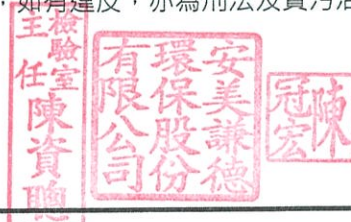 ，如有違反，亦為刑法及貪污治
檢驗室
主任陳資聰
安美謙德
環保股份
有限公司
陳冠宏